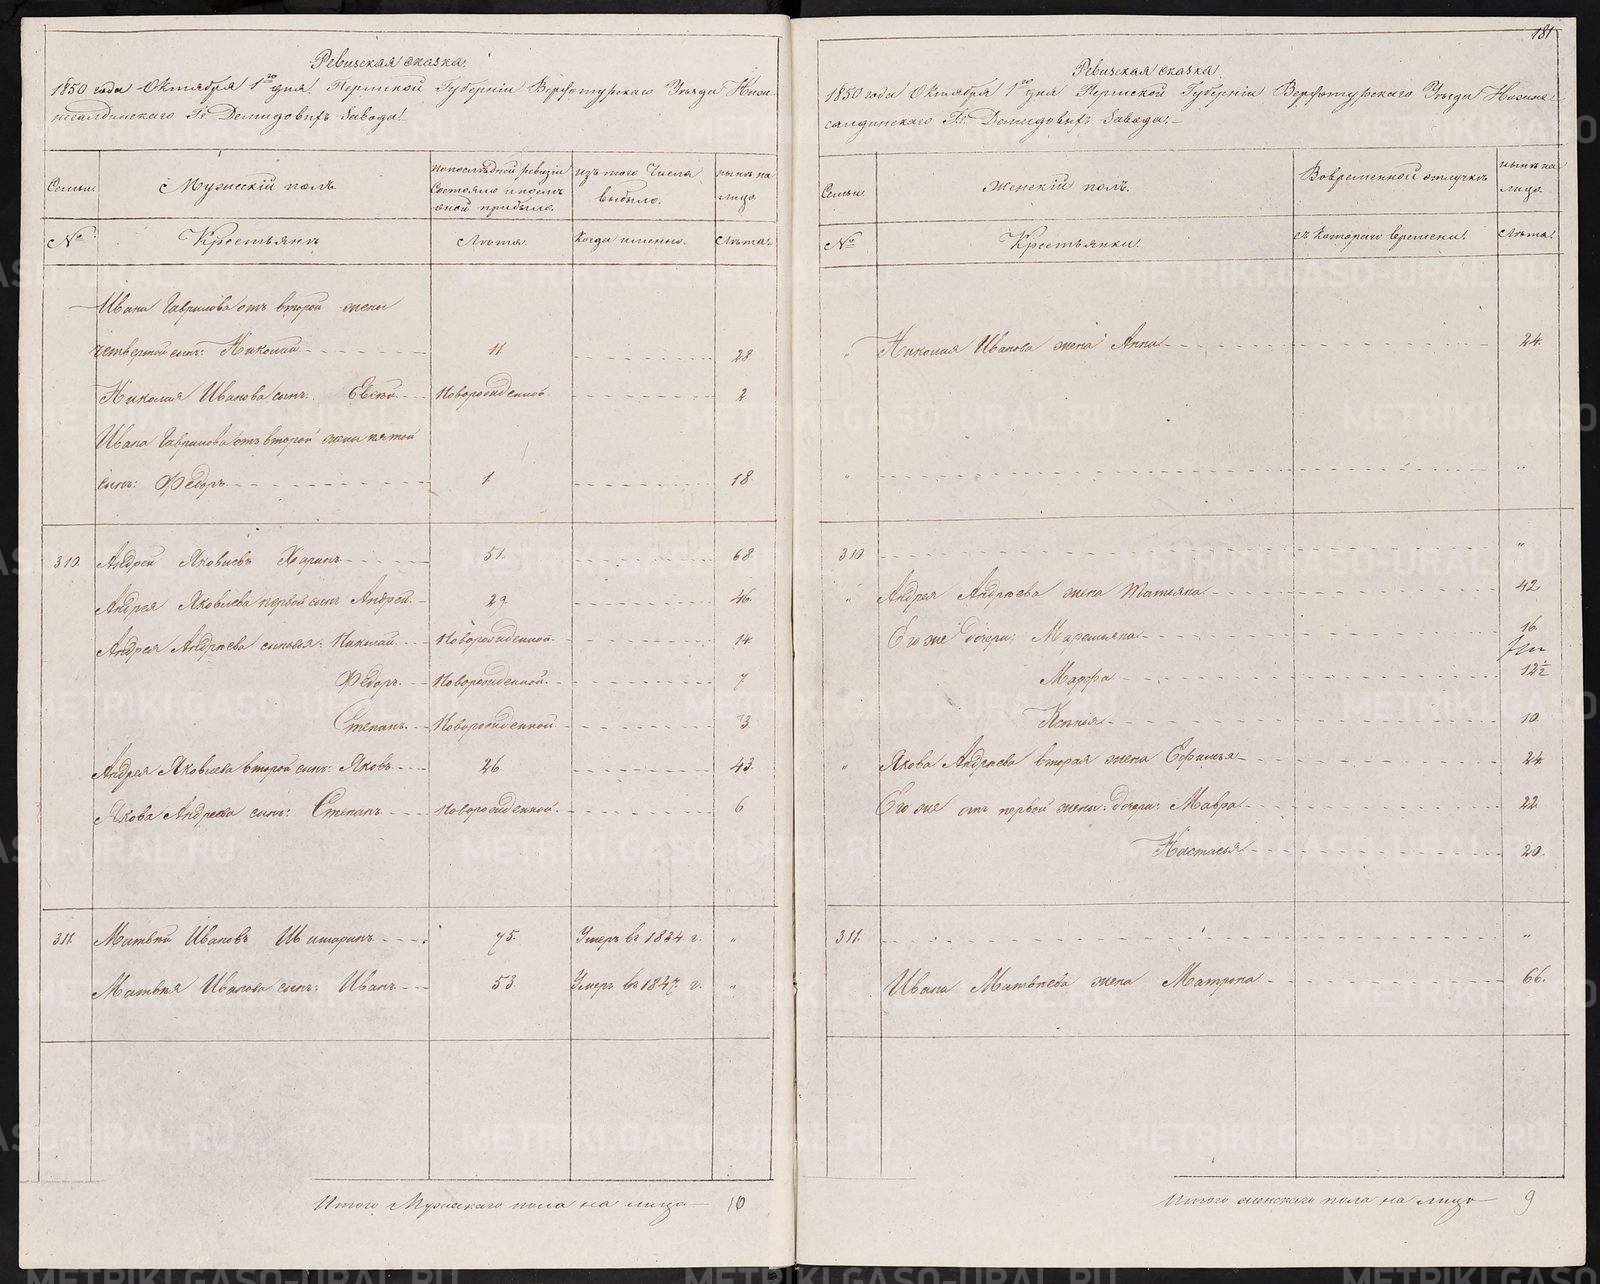 Ревизская сказка.
1850 года Октября 1го дня. Пермской Губернии Верхотурскаго Уѣзда Нижне-
салдинскаго Гг. Демидовыхъ Завода.
Семьи.
Мужескій полъ.
По последней ревизіи состояло и после оной прибыло.
Изъ того числа выбыло.
Нынѣ на лицо
№
Крестьянъ
Лѣта.
Когда именно.
Лѣта.
Ивана Гаврилова отъ второй жены
четвертой сынъ: Николай 11 28
Николая Иванова сынъ: Новорожденной 2
Ивана Гаврилова отъ второй жены пятой
сынъ: Федоръ 1 18.
310. Андрей Яковлевъ Харинъ 51. 68
Андрея Яковлева первой сынъ Андрей 29 46.
Андрея Андреева сыновья: Николай Новорожденной 14
Федоръ Новорожденной 7
Степанъ Новорожденной 3
Андрея Яковлева второй сынъ: Яковъ 26 43.
Якова Андреева сынъ: Степанъ Новорожденной 6
311. Матвей Ивановъ 75. Умеръ въ 1834 г. "
Матвея Иванова сынъ: Иванъ 53 Умеръ въ 1847 г. "
Итого Мужескаго пола на лицо 10
181
Ревизская сказка.
1850 года Октября 1го дня Пермской Губернии Верхотурскаго Уѣзда Нижне-
салдинскаго Гг. Демидовыхъ Завода.
Семьи.
Женскій полъ.
Во временной отлучкѣ
Нынѣ на лицо.
№
Крестьянки.
Съ котораго времени.
Лѣта.
" Николая Иванова жена Анна 24.
" "
310 "
" Андрея Андреева жена Татьяна 42
Его же дочери: Маремьяна 16
Марфа 12½
Ксенья 10
" Якова Андреева вторая жена Ефимья 24
Его же отъ первой жены: дочери: Мавра 22
Настасья 20.
311. "
Ивана Матвеева жена Матрона 66.
Итого женскаго пола на лицо 9
METRIKI.GASO-URAL.RU